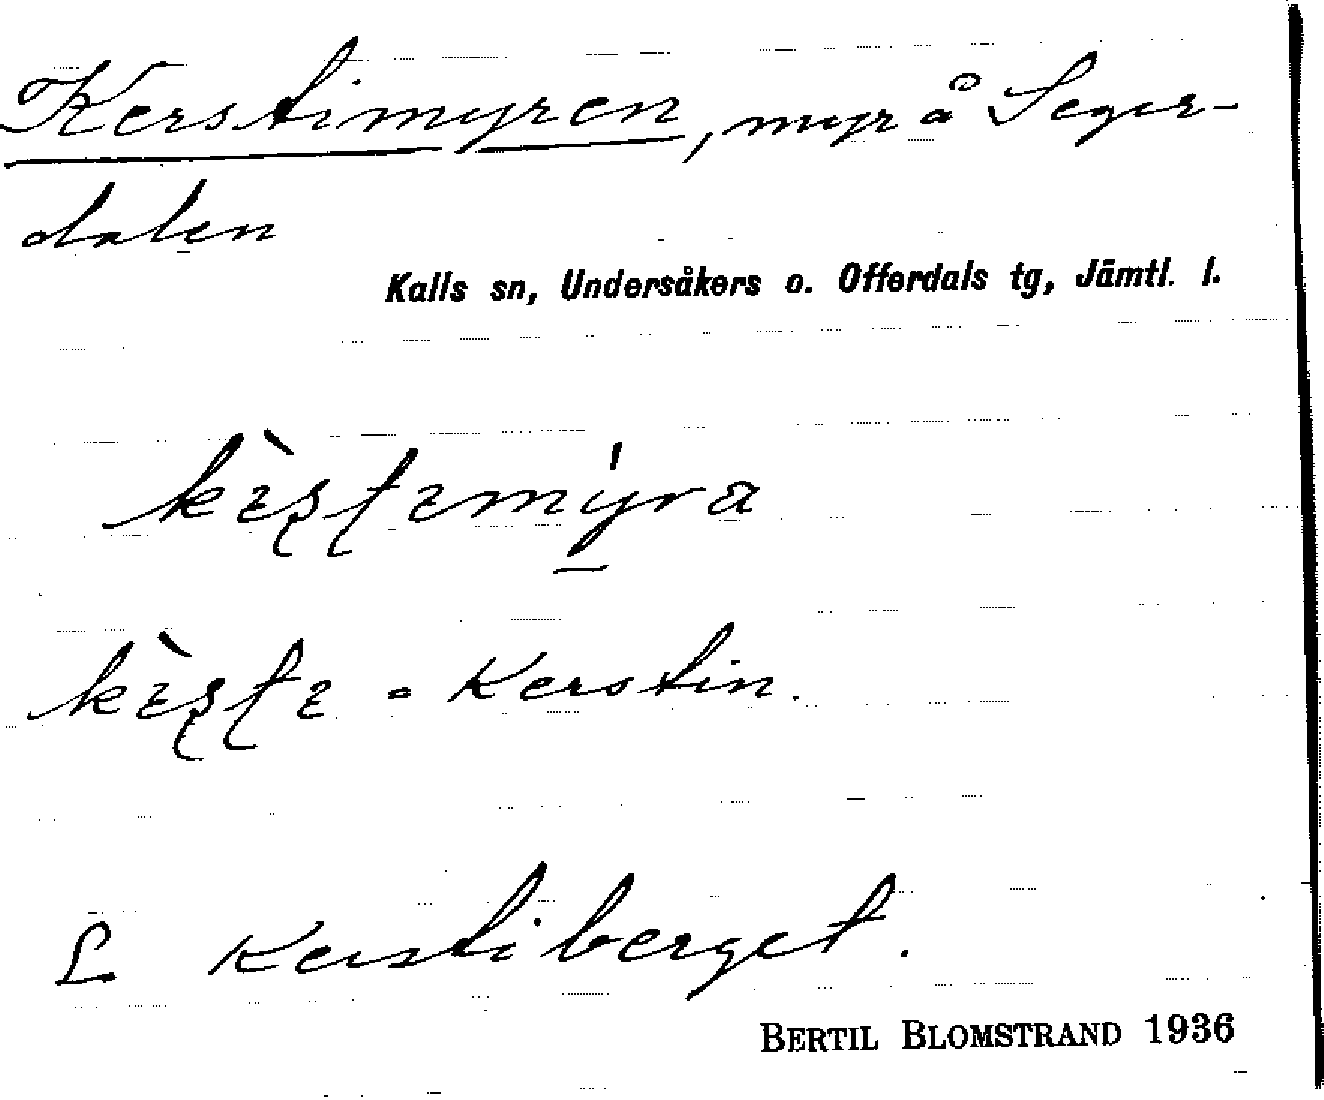 Kerstimyren, myr å Seger-
dalen
Kalls sn, Undersåkers o. Offerdals tg, Jämtl. l.
Kerstin.
Kerstiberget.
BERTIL BLOMSTRAND 1936